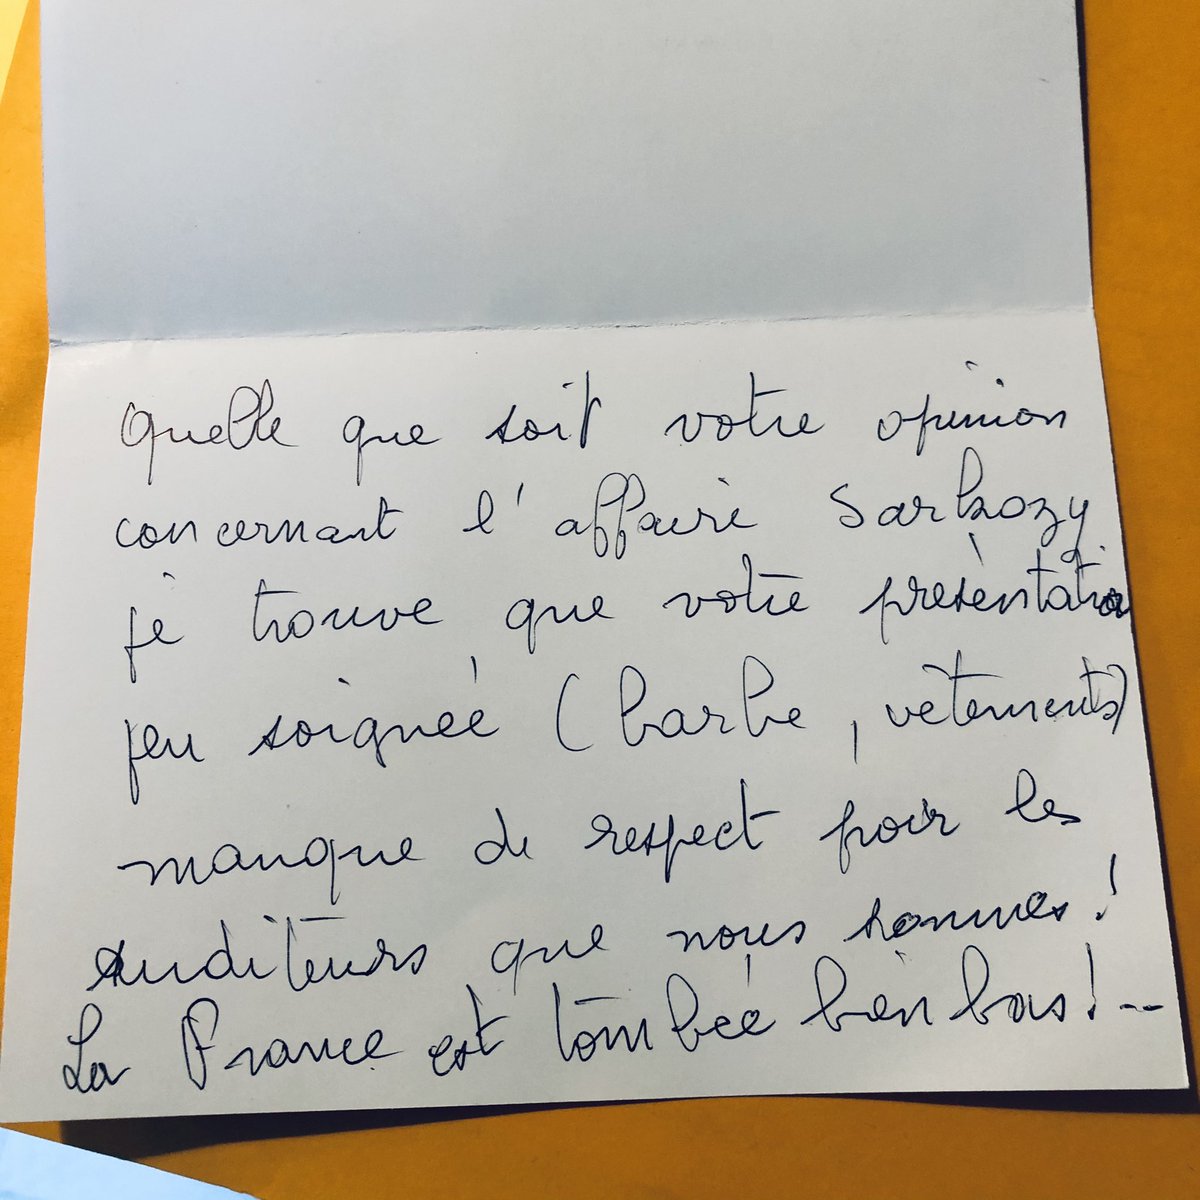 Quelle que soit votre opinion
concernant l'affaire Sarkozy
je trouve que votre présentation
peu soignée (barbe, vêtements)
manque de respect pour les
auditeurs que nous sommes!
La France est tombée bien bas!--